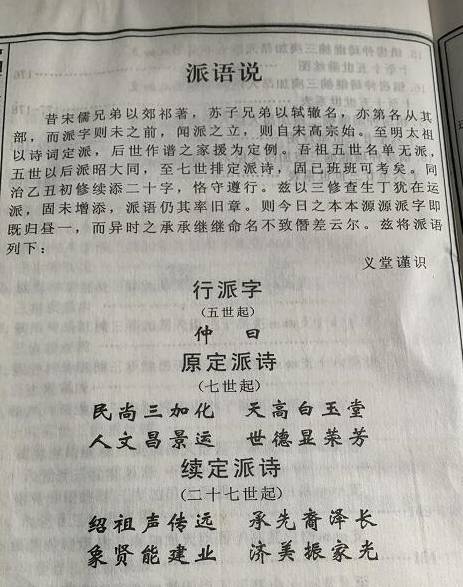 派语说
昔宋儒兄弟以郊祁著，苏子兄弟以轼辙名，亦第各从其
部，而派字则未之前，闻派之立，则自宋高宗始。至明太祖
以诗词定派，后世作谱之家援为定例。吾祖五世名单无派，
五世以后派昭大同，至七世排定派诗，固已班班可考矣。同
治乙丑初修续添二十字，恪守遵行。兹以三修查生丁犹在运
派，固未增添，派语仍其率旧章。则今日之本本源源派字即
既归昼一，而异时之承承继继命名不致僭差云尔。兹将派语
列下：
义堂谨识
行派字
（五世起）
仲 曰
原定派诗
（七世起）
民尚三加化 天高白玉堂
人文昌景运 世德显荣芳
续定派诗
（二十七世起）
绍祖声传远 承先裔泽长
象贤能建业 济美振家光